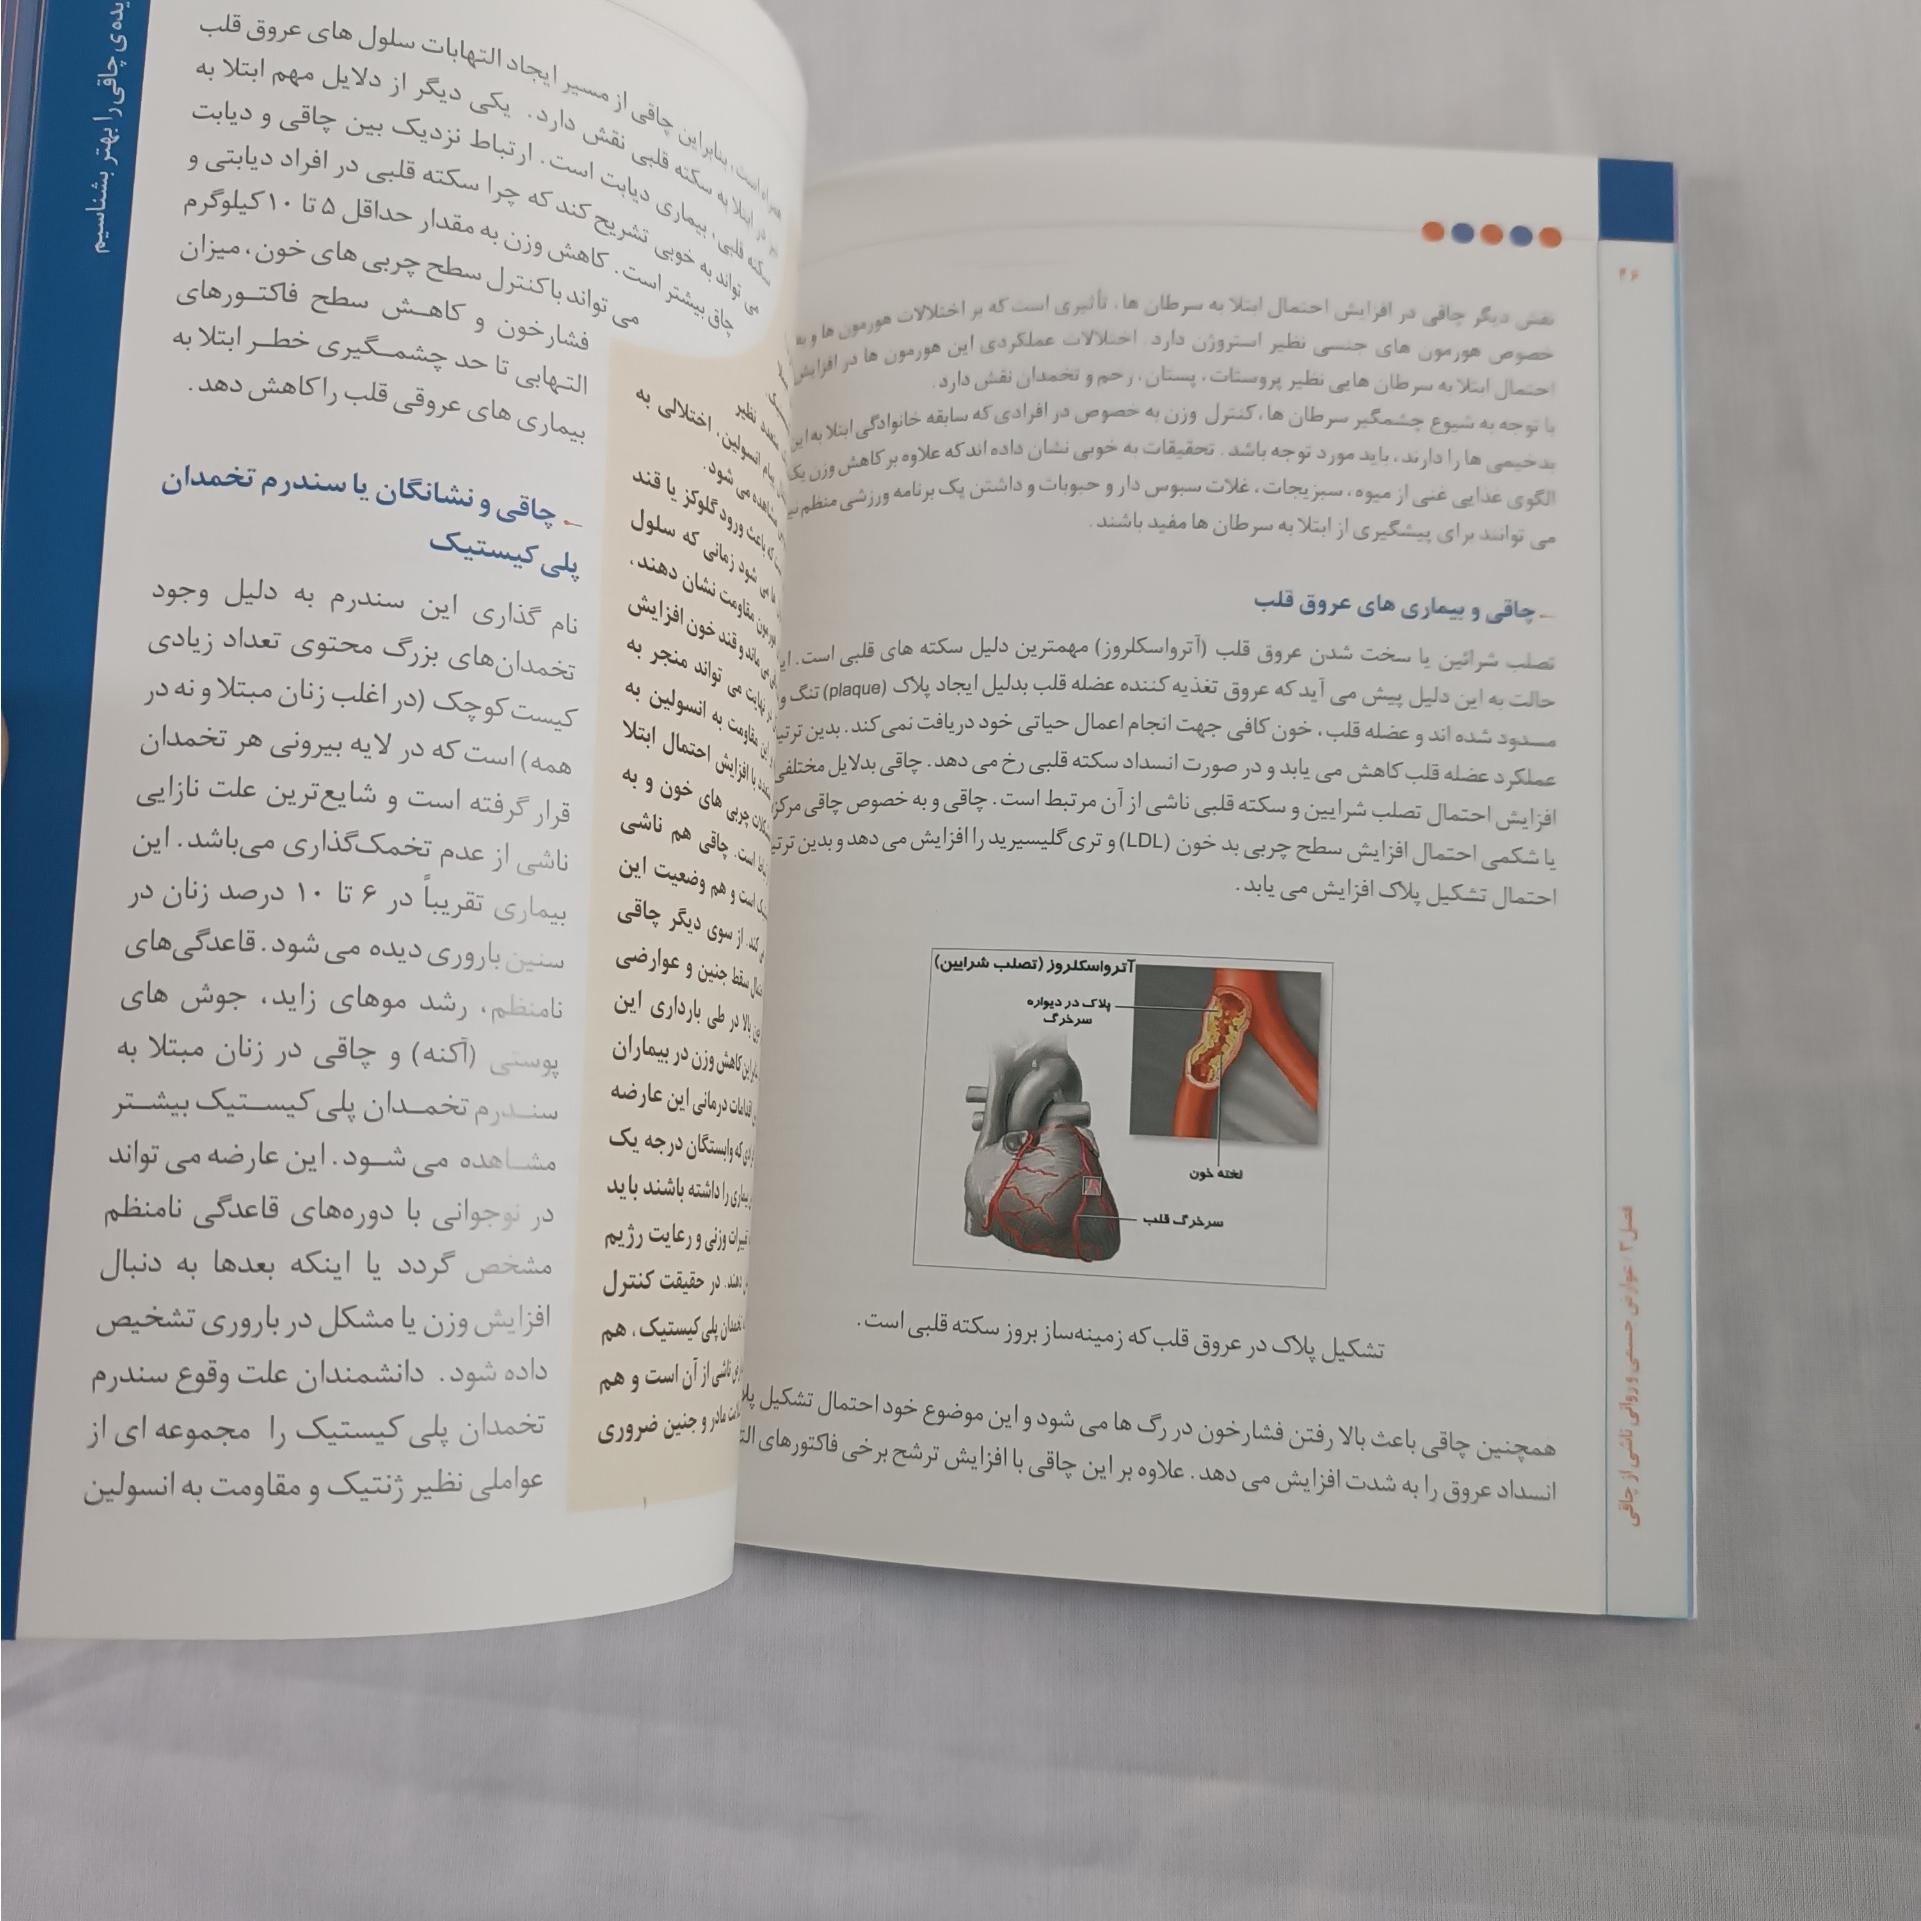 ۴۶
نقش دیگر چاقی در افزایش احتمال ابتلا به سرطان ها، تأثیری است که بر اختلالات هورمون ها و به
خصوص هورمون های جنسی نظیر استروژن دارد. اختلالات عملکردی این هورمون ها در افزایش
احتمال ابتلا به سرطان هایی نظیر پروستات، پستان، رحم و تخمدان نقش دارد.
با توجه به شیوع چشمگیر سرطان ها، کنترل وزن به خصوص در افرادی که سابقه خانوادگی ابتلا به این
بدخیمی ها را دارند، باید مورد توجه باشد. تحقیقات به خوبی نشان داده اند که علاوه بر کاهش وزن یک
الگوی غذایی غنی از میوه، سبزیجات، غلات سبوس دار و حبوبات و داشتن یک برنامه ورزشی منظم نیز
می توانند برای پیشگیری از ابتلا به سرطان ها مفید باشند.
چاقی و بیماری های عروق قلب
تصلب شرائین یا سخت شدن عروق قلب (آترواسکلروز) مهمترین دلیل سکته های قلبی است.
حالت به این دلیل پیش می آید که عروق تغذیه کننده عضله قلب بدلیل ایجاد پلاک (plaque) تنگ و
مسدود شده اند و عضله قلب، خون کافی جهت انجام اعمال حیاتی خود دریافت نمی کند. بدین
عملکرد عضله قلب کاهش می یابد و در صورت انسداد سکته قلبی رخ می دهد. چاقی بدلایل مختلفی
افزایش احتمال تصلب شرایین و سکته قلبی ناشی از آن مرتبط است. چاقی و به خصوص چاقی
یا شکمی احتمال افزایش سطح چربی بد خون (LDL) و تری گلیسیرید را افزایش می دهد و بدین
احتمال تشکیل پلاک افزایش می یابد.
آترواسکلروز (تصلب شرایین)
پلاک در دیواره
سرخرگ
لخته خون
سرخرگ قلب
تشکیل پلاک در عروق قلب که زمینه‌ساز بروز سکته قلبی است.
همچنین چاقی باعث بالا رفتن فشارخون در رگ ها می شود و این موضوع خود احتمال تشکیل
انسداد عروق را به شدت افزایش می دهد. علاوه بر این چاقی با افزایش ترشح برخی فاکتورهای
فصل ۳ عوارض جسمی و روانی ناشی از چاقی
چاقی را بهتر بشناسیم
همراه است، بنابراین چاقی از مسیر ایجاد التهابات سلول های عروق قلب
در ابتلا به سکته قلبی نقش دارد. یکی دیگر از دلایل مهم ابتلا به
سکته قلبی، بیماری دیابت است. ارتباط نزدیک بین چاقی و دیابت
می تواند به خوبی تشریح کند که چرا سکته قلبی در افراد دیابتی و
چاق بیشتر است. کاهش وزن به مقدار حداقل ۵ تا ۱۰ کیلوگرم
می تواند با کنترل سطح چربی های خون، میزان
فشارخون و کاهش سطح فاکتورهای
التهابی تا حد چشمگیری خطر ابتلا به
بیماری های عروقی قلب را کاهش دهد.
چاقی و نشانگان یا سندرم تخمدان
پلی کیستیک
نام گذاری این سندرم به دلیل وجود
تخمدان‌های بزرگ محتوی تعداد زیادی
کیست کوچک (در اغلب زنان مبتلا و نه در
همه) است که در لایه بیرونی هر تخمدان
قرار گرفته است و شایع‌ترین علت نازایی
ناشی از عدم تخمک‌گذاری می‌باشد. این
بیماری تقریباً در ۶ تا ۱۰ درصد زنان در
سنین باروری دیده می شود. قاعدگی‌های
نامنظم، رشد موهای زاید، جوش های
پوستی (آکنه) و چاقی در زنان مبتلا به
سندرم تخمدان پلی کیستیک بیشتر
مشاهده می شود. این عارضه می تواند
در نوجوانی با دوره‌های قاعدگی نامنظم
مشخص گردد یا اینکه بعدها به دنبال
افزایش وزن یا مشکل در باروری تشخیص
داده شود. دانشمندان علت وقوع سندرم
تخمدان پلی کیستیک را مجموعه ای از
عواملی نظیر ژنتیک و مقاومت به انسولین
متعدد نظیر
انسولین، اختلالی به
مشاهده می شود.
که باعث ورود گلوکز یا قند
ها می شود زمانی که سلول
هورمون مقاومت نشان دهند،
می ماند و قند خون افزایش
در نهایت می تواند منجر به
این مقاومت به انسولین به
با افزایش احتمال ابتلا
چربی های خون و به
است. چاقی هم ناشی
است و هم وضعیت این
کند. از سوی دیگر چاقی
سقط جنین و عوارضی
بالا در طی بارداری این
کاهش وزن در بیماران
اقدامات درمانی این عارضه
که وابستگان درجه یک
بیماری را داشته باشند باید
وزنی و رعایت رژیم
دهند. در حقیقت کنترل
تخمدان پلی کیستیک، هم
ناشی از آن است و هم
مادر و جنین ضروری